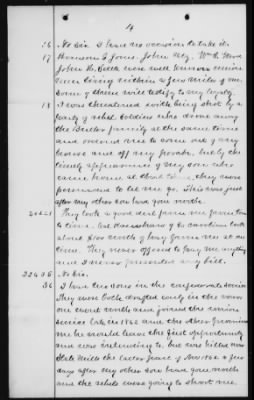 4
16 No Sir I had no occasion to take it.
17 Thomson F. Jones, John Kly, Wm C. More
John H. Bell were well known union
men living within a few miles of me.
Some of them will testify to my loyalty.
18 I was threatened with being shot by a
party of rebel soldiers who drove away
the Butler family at the same time
and ordered me to come out of my
house and off my porch, but the
timely appearance of my son who
came home at that time they were
persuaded to let me go. This was just
after my other son had gone north.
20 & 21 They took a good deal from me from time
to time. Col. Hainshaw of N. Carolina took
about $100 worth of hay from me at one
time. They never offered to pay me anything
and I never presented any bill.
22 & 35 No Sir.
36 I had two sons in the confederate service.
They were both drafted early in the war
one went north and joined the union
service late in 1862 and the other promised
me he would leave the first opportunity
and was intending to, but was killed near
Mills the latter part of Nov 1862 a few
days after my other son had gone north
and the rebels were going to shoot me.